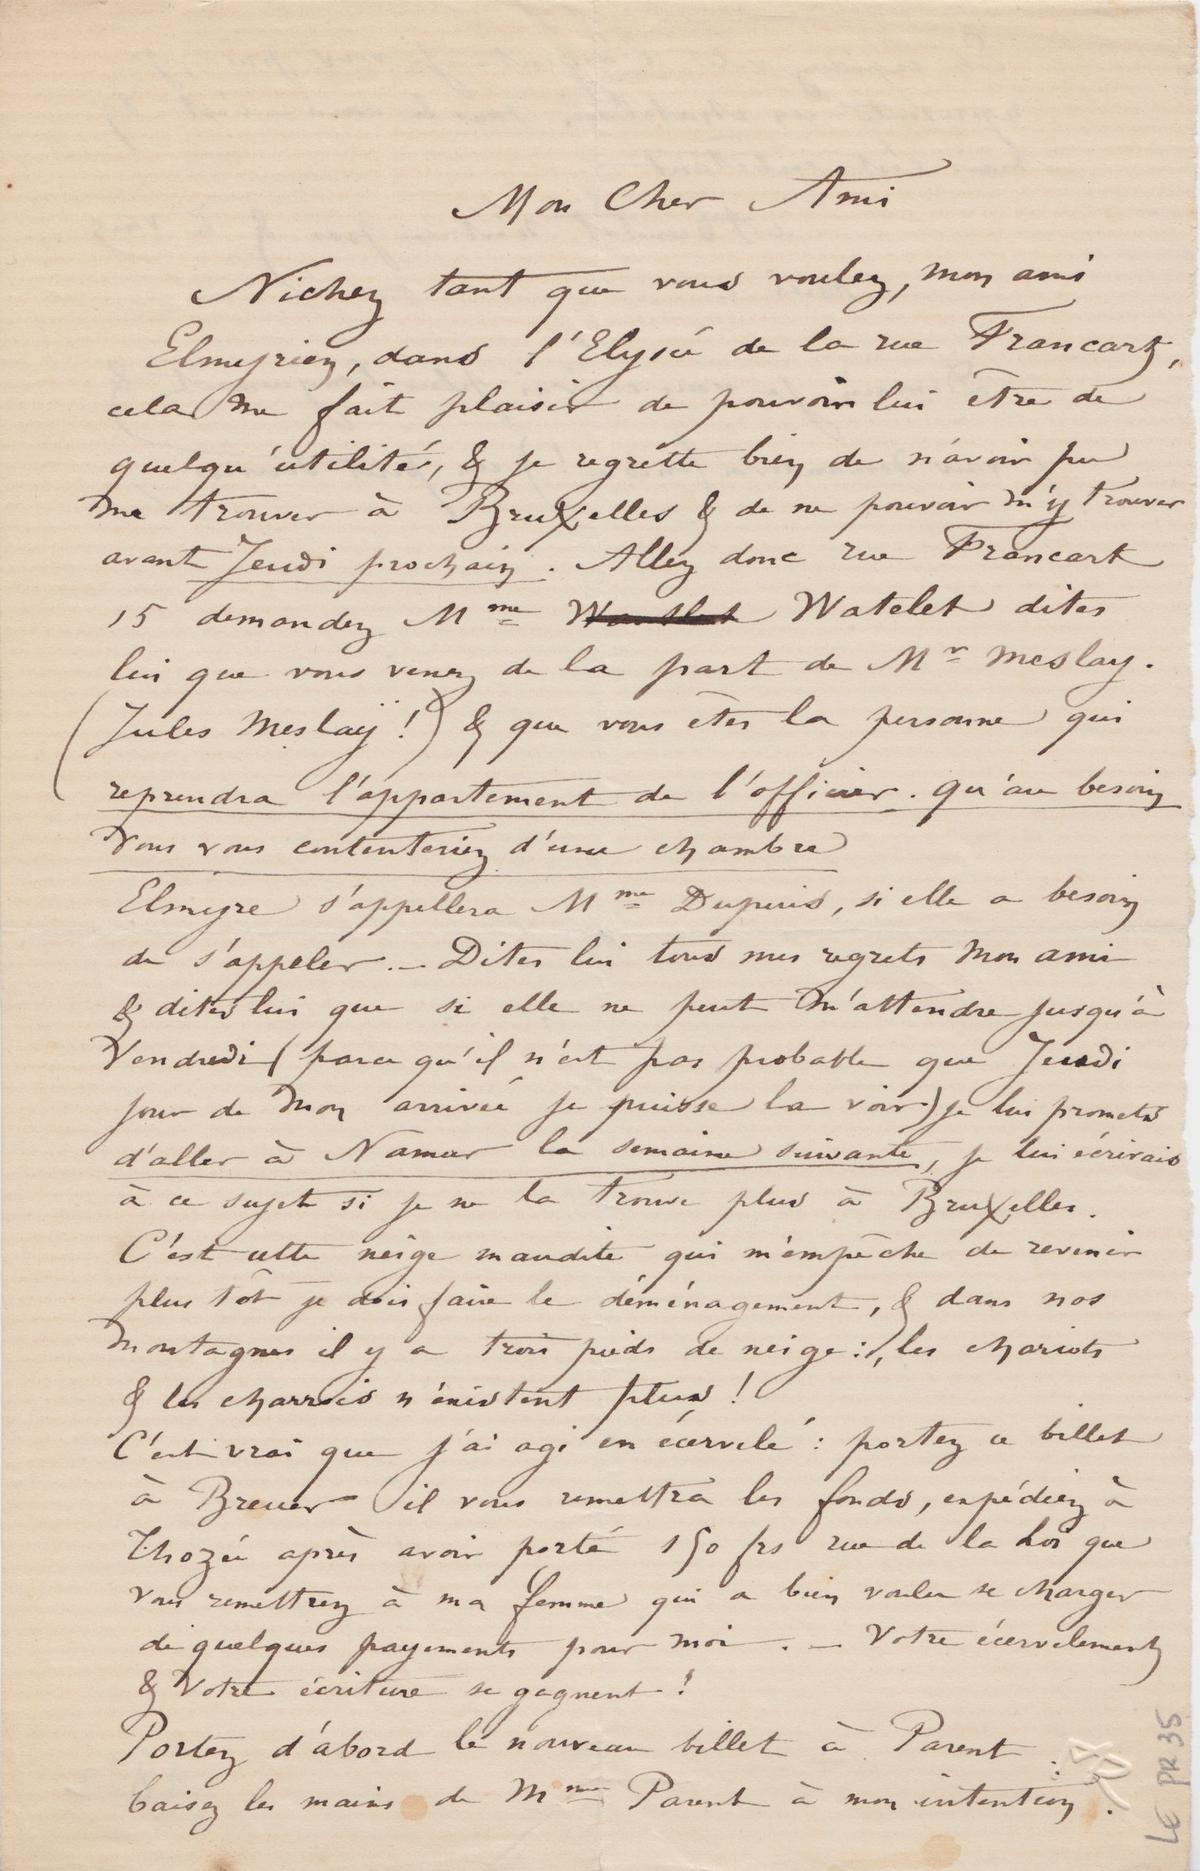 Mon Cher Ami
Nichez tant que vous voulez, mon ami
Elmyrien, dans l'Elysée de la rue Francart,
cela me fait plaisir de pouvoir lui être de
quelqu'utilités, & je regrette bien de n'avoir pu
me trouver à Bruxelles & de ne pouvoir m'y trouver
avant Jeudi prochain. Allez donc rue Francart
15 demandez Mme Watelet dites
lui que vous venez de la part de Mr Meslay.
(Jules Meslaÿ!) & que vous êtes la personne qui
reprendra l'appartement de l'officier. qu'au besoin
vous vous contenteriez d'une chambre
Elmyre s'appellera Mme Dupuis, si elle a besoin
de s'appeler. — Dites lui tous mes regrets mon ami
& dites lui que si elle ne peut m'attendre jusqu'à
Vendredi (parce qu'il n'est pas probable que Jeudi
jour de mon arrivée je puisse la voir) je lui promets
d'aller à Namur la semaine suivante, je lui écrirais
à ce sujet si je ne la trouve plus à Bruxelles.
C'est cette neige maudite qui m'empêche de revenir
plus tôt je dois faire le déménagement, & dans nos
montagnes il y a trois pieds de neige:, les chariots
& les charrois n'existent plus!
C'est vrai que j'ai agi en écervelé: portez ce billet
à Breuer il vous remettra les fonds, expédiez à
Thozée après avoir porté 150 frs rue de la Loi que
vous remettrez à ma femme qui a bien voulu se charger
de quelques payements pour moi. — Votre écervelement
& votre écriture se gagnent!
Portez d'abord le nouveau billet à Parent
baisez les mains de Mme Parent à mon intention.
LE PR 35